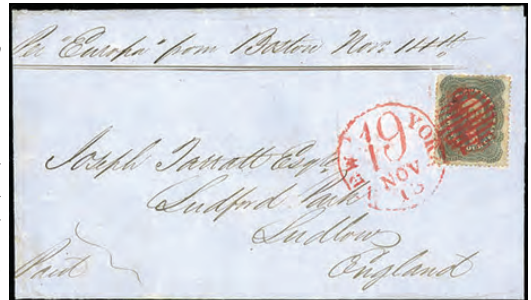 Per "Europa" from Boston Nov: 14th
NEW YORK
19
NOV
Joseph Tarratt Esqr.
Ludford Park
Ludlow
England
Paid